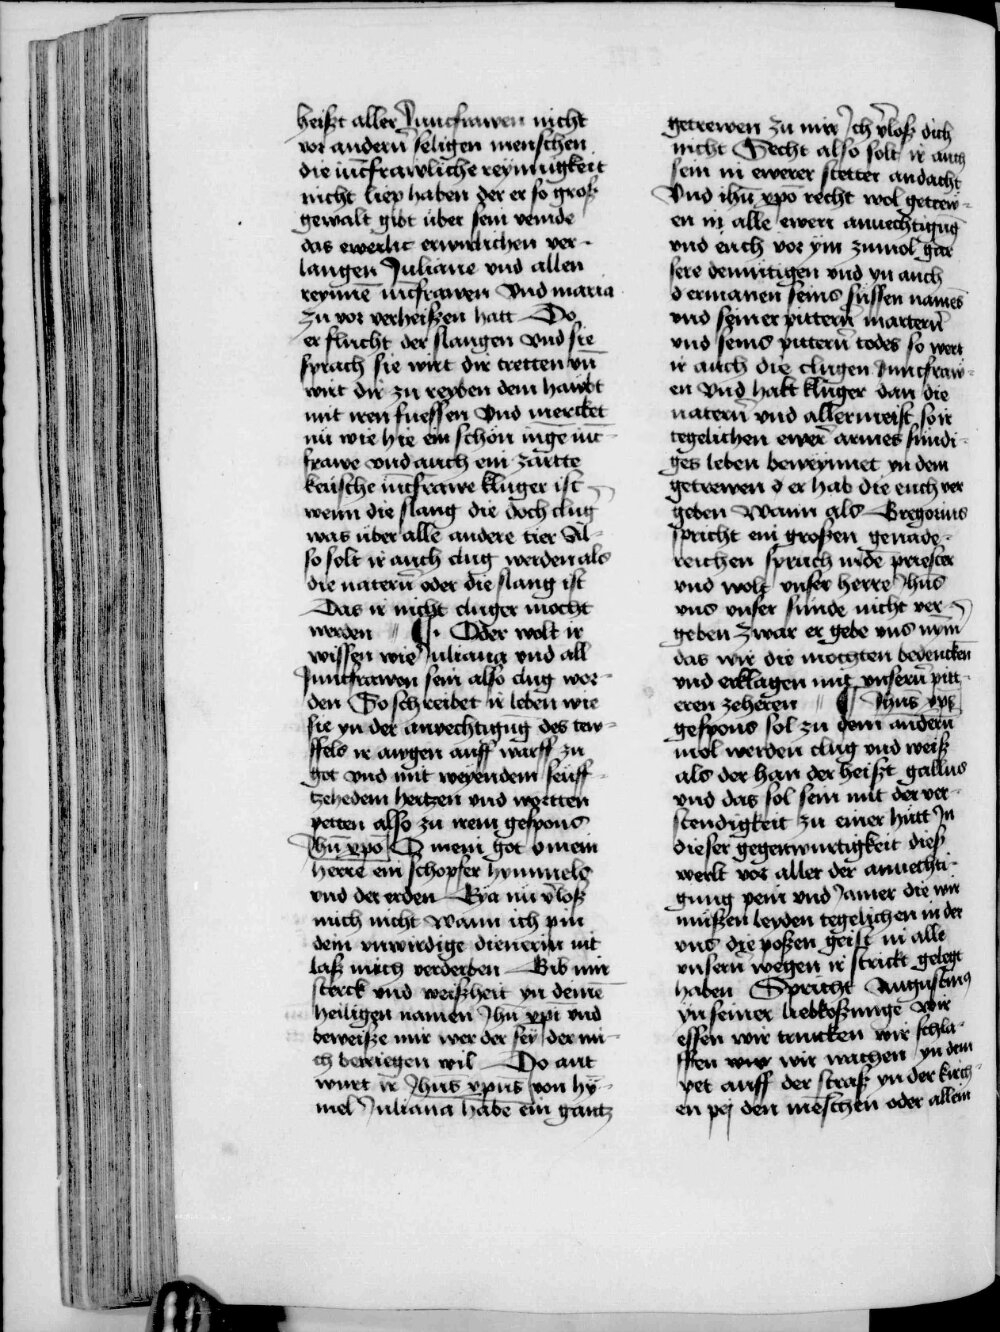 heißt aller Junckfrawen nicht
vor andern seligen menschen
die iūckfrawliche reynnigkeit
nicht liep haben der er so groß
gewalt gibt über sein veinde
das ewerlic erwirlichen ver-
langen Juliane vnd allen
reynnē iūckfrawen Vnd maria
zu vor verheißen hatt Do
er flucht der slangen Vnd sie
sprach sie wirt dir tretten vn̄
wirt dir zu reyben dem hawbt
mit iren fuessen Vnd mercket
nū wie hie ein schon iūge iūc-
frawe vnd auch ein zartte
keusche iūcfrawe kluger ist
wenn die slang die doch clug
was über alle andere tier Al-
so solt ir auch clug werden als
die natern̄ oder die slang ist
Das ir nicht cluger mocht
werden ¶ Oder wolt ir
wissen wie Juliana vnd all
Junckfrawen sein also clug wor-
den So schreibet ir leben wie
sie yn der anvechtigūg des tew-
ffels ir awgen auff warff zu
got vnd mit weyendem seuff-
tzendem hertzen vnd wortten
petten also zu irem gespons
Jhū xpō O mein got o mein
herre ein schopfer hymmels
vnd der erden Eya nū v̄loß
mich nicht Wann ich pin
dein vnwirdige dienerin nit
laß mich verderben Gib mir
sterck vnd weißheit yn deinē
heiligen namen Jhū xpī vnd
beweiße mir wer der sey der mi-
ch betriegen wil Do ant
wurt ir Jhūs xpūs von hȳ-
mel Juliana habe ein gantz
getrewen zu mir Ich v̄loß dich
nicht Secht also solt ir auch
sein in ewerer stetter andacht
Vnd ihū xpō recht wol getrew-
en in alle ewerr anvechtigūg
vnd euch vor ym zumol gar
sere demutigen vnd yn auch
d ermanen seins sussen namēs
vnd seiner pittern̄ martern̄
vnd seins pittern̄ todes so wert
ir auch die clugen Junckfraw-
en Vnd halt kluger dan die
natern̄ vnd allermeist so ir
tegelichen ewer armes sundi-
ges leben beweynnet yn dem
getrewen d er hab die euch ver
geben Wann als Gregorius
spricht ein großen genade-
reichen spruch in dē priester
vnd wolt vnser herre Jhūs
vns vnser sunde nicht ver-
geben zwar er gebe vns nȳm
das wir die mochten bedencken
vnd erklagen mit vnsern pitt-
eren zeheren ¶ Jhūs xp̄s
gespons sol zu dem andern
mol werden clug vnd weiß
als der han der heißt gallus
vnd das sol sein mit der ver-
stendigkeit zu einer hutt In
dieser gegenwurtigkeit dieß
werlt vor aller der anvechti-
gung pein vnd Jamer die wir
mußen leyden tegelichen in der
vns die poßen geist in alle
vnsern̄ wegen ir strickt gelegt
haben Spricht Augustinus
yn seiner liebkoßunge Wir
essen wir trincken wir schla-
ffen wir wachen yn dem
pet auff der straß yn der kirch-
en pej den mēschen oder allein